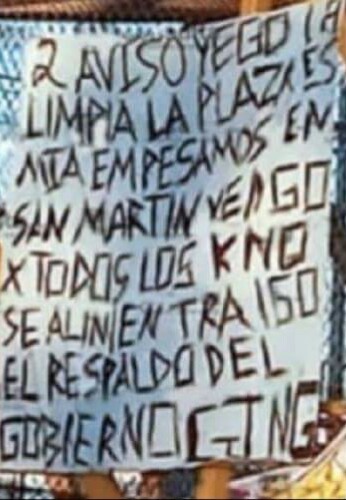 2 AVISO YEGO LA
LIMPIA LA PLAZA ES
MIA EMPESAMOS EN
SAN MARTIN VENGO
X TODOS LOS K NO
SE ALINIEN TRAIGO
EL RESPALDO DEL
GOBIERNO CJNG